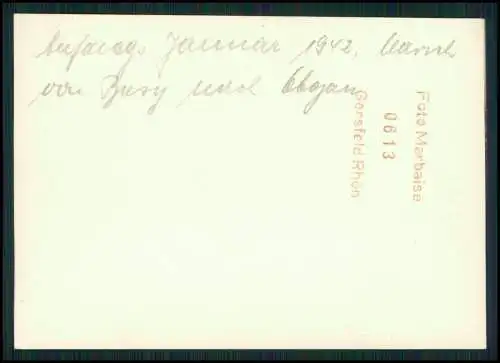 Anfang Januar 1942. Marsch
von Bury nach Obojan
Foto Marbaise
0613
Gersfeld Rhön